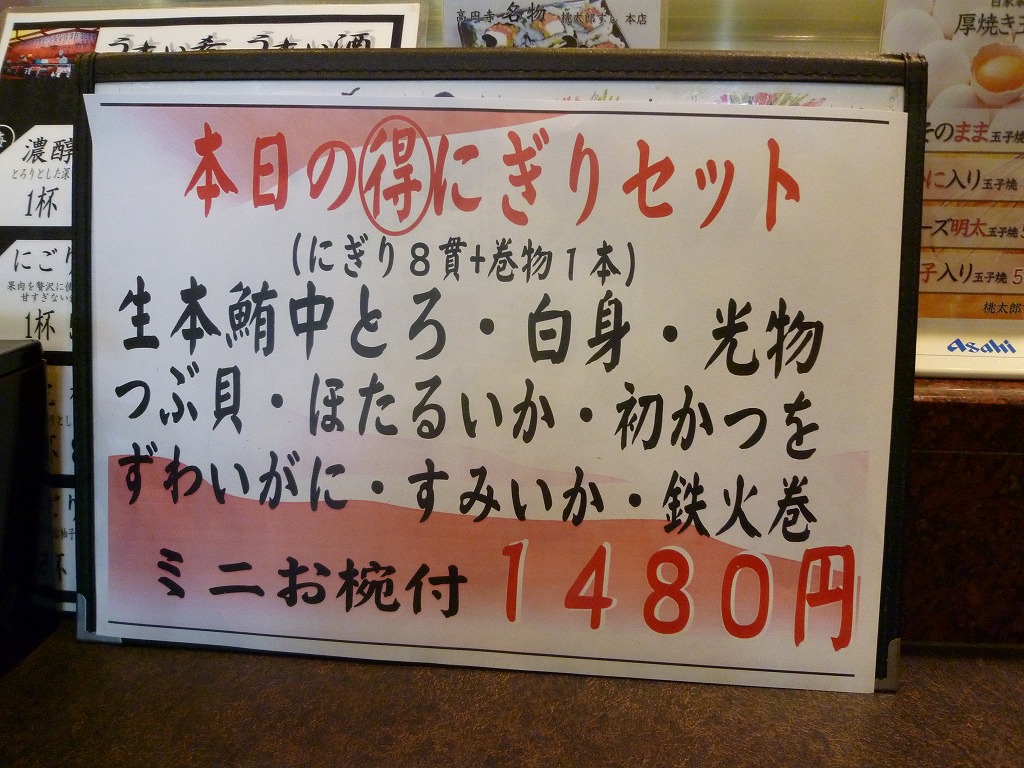 高円寺 名物 桃太郎すし 本店
本日の得にぎりセット
(にぎり8貫+巻物1本)
生本鮪中とろ・白身・光物
つぶ貝・ほたるいか・初かつを
ずわいがに・すみいか・鉄火巻
ミニお椀付 1480円
濃醇
とろりとした
1杯
にごり
果肉を贅沢に
甘すぎない
1杯
厚焼き
そのまま玉子焼
に入り玉子焼
ーズ明太玉子焼
子入り玉子焼
桃太郎
Asahi